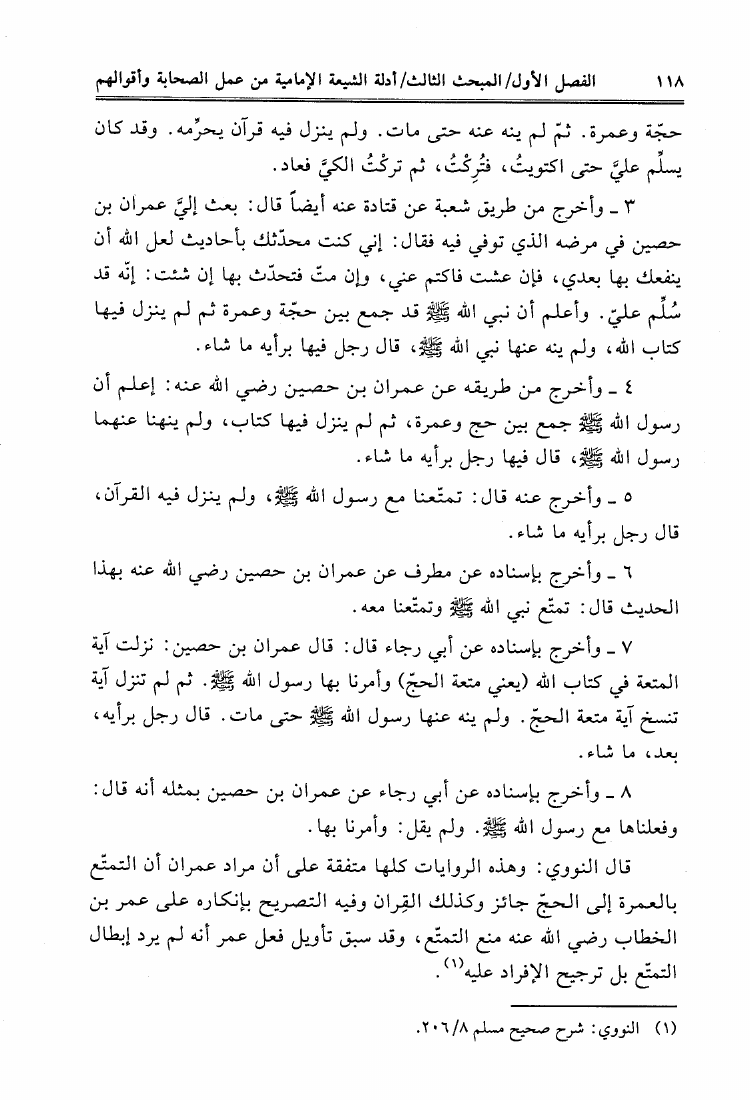 ١١٨ الفصل الأول/ المبحث الثالث/ أدلة الشيعة الإمامية من عمل الصحابة وأقوالهم
حجّة وعمرة. ثمّ لم ينه عنه حتى مات. ولم ينزل فيه قرآن يحرِّمه. وقد كان
يسلِّم عليَّ حتى اكتويتُ، فتُرِكْتُ، ثم تركْتُ الكيَّ فعاد.
٣ ـ وأخرج من طريق شعبة عن قتادة عنه أيضاً قال: بعث إليَّ عمران بن
حصين في مرضه الذي توفي فيه فقال: إني كنت محدّثك بأحاديث لعل الله أن
ينفعك بها بعدي، فإن عشت فاكتم عني، وإن متّ فتحدّث بها إن شئت: إنّه قد
سُلِّم عليّ. وأعلم أن نبي الله ﷺ قد جمع بين حجّة وعمرة ثم لم ينزل فيها
كتاب الله، ولم ينه عنها نبي الله ﷺ، قال رجل فيها برأيه ما شاء.
٤ ـ وأخرج من طريقه عن عمران بن حصين رضي الله عنه: إعلم أن
رسول الله ﷺ جمع بين حج وعمرة، ثم لم ينزل فيها كتاب، ولم ينهنا عنهما
رسول الله ﷺ، قال فيها رجل برأيه ما شاء.
٥ ـ وأخرج عنه قال: تمتّعنا مع رسول الله ﷺ، ولم ينزل فيه القرآن،
قال رجل برأيه ما شاء.
٦ ـ وأخرج بإسناده عن مطرف عن عمران بن حصين رضي الله عنه بهذا
الحديث قال: تمتّع نبي الله ﷺ وتمتّعنا معه.
٧ ـ وأخرج بإسناده عن أبي رجاء قال: قال عمران بن حصين: نزلت آية
المتعة في كتاب الله (يعني متعة الحجّ) وأمرنا بها رسول الله ﷺ. ثم لم تنزل آية
تنسخ آية متعة الحجّ. ولم ينه عنها رسول الله ﷺ حتى مات. قال رجل برأيه،
بعد، ما شاء.
٨ ـ وأخرج بإسناده عن أبي رجاء عن عمران بن حصين بمثله أنه قال:
وفعلناها مع رسول الله ﷺ. ولم يقل: وأمرنا بها.
قال النووي: وهذه الروايات كلها متفقة على أن مراد عمران أن التمتّع
بالعمرة إلى الحجّ جائز وكذلك القِران وفيه التصريح بإنكاره على عمر بن
الخطاب رضي الله عنه منع التمتّع، وقد سبق تأويل فعل عمر أنه لم يرد إبطال
التمتّع بل ترجيح الإفراد عليه(١).
(١) النووي: شرح صحيح مسلم ٢٠٦/٨.